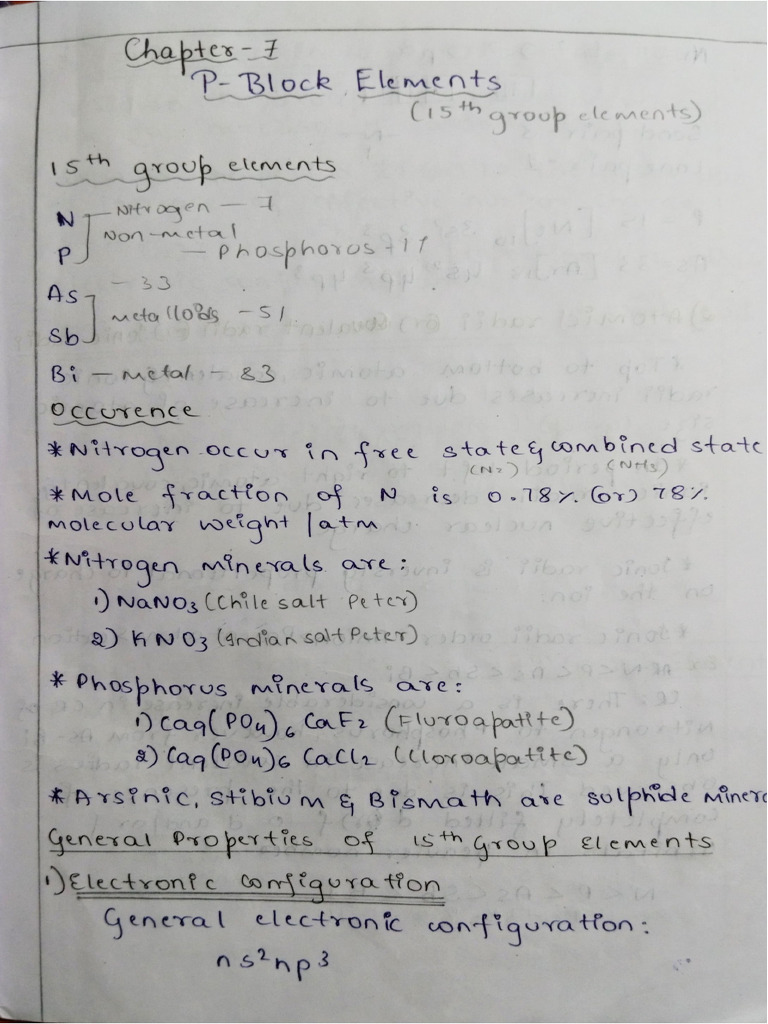 Chapter-7
P-Block Elements
(15th group elements)
15th group elements
N - Nitrogen - 7
Non-metal
P - Phosphorus - 17
As - 33
metalloids - 51
Sb
Bi - metal - 83
Occurence
*Nitrogen occur in free state & combined state
(N2) (NH3)
*Mole fraction of N is 0.78% (or) 78%
molecular weight / atm
*Nitrogen minerals are:
1) NaNO3 (Chile salt Peter)
2) KNO3 (Indian salt Peter)
* Phosphorus minerals are:
1) Ca9(PO4)6 CaF2 (Fluroapatite)
2) Ca9(PO4)6 CaCl2 (Cloroapatite)
* Arsinic, Stibium & Bismath are sulphide minera
General Properties of 15th Group Elements
1) Electronic configuration
General electronic configuration:
ns2np3